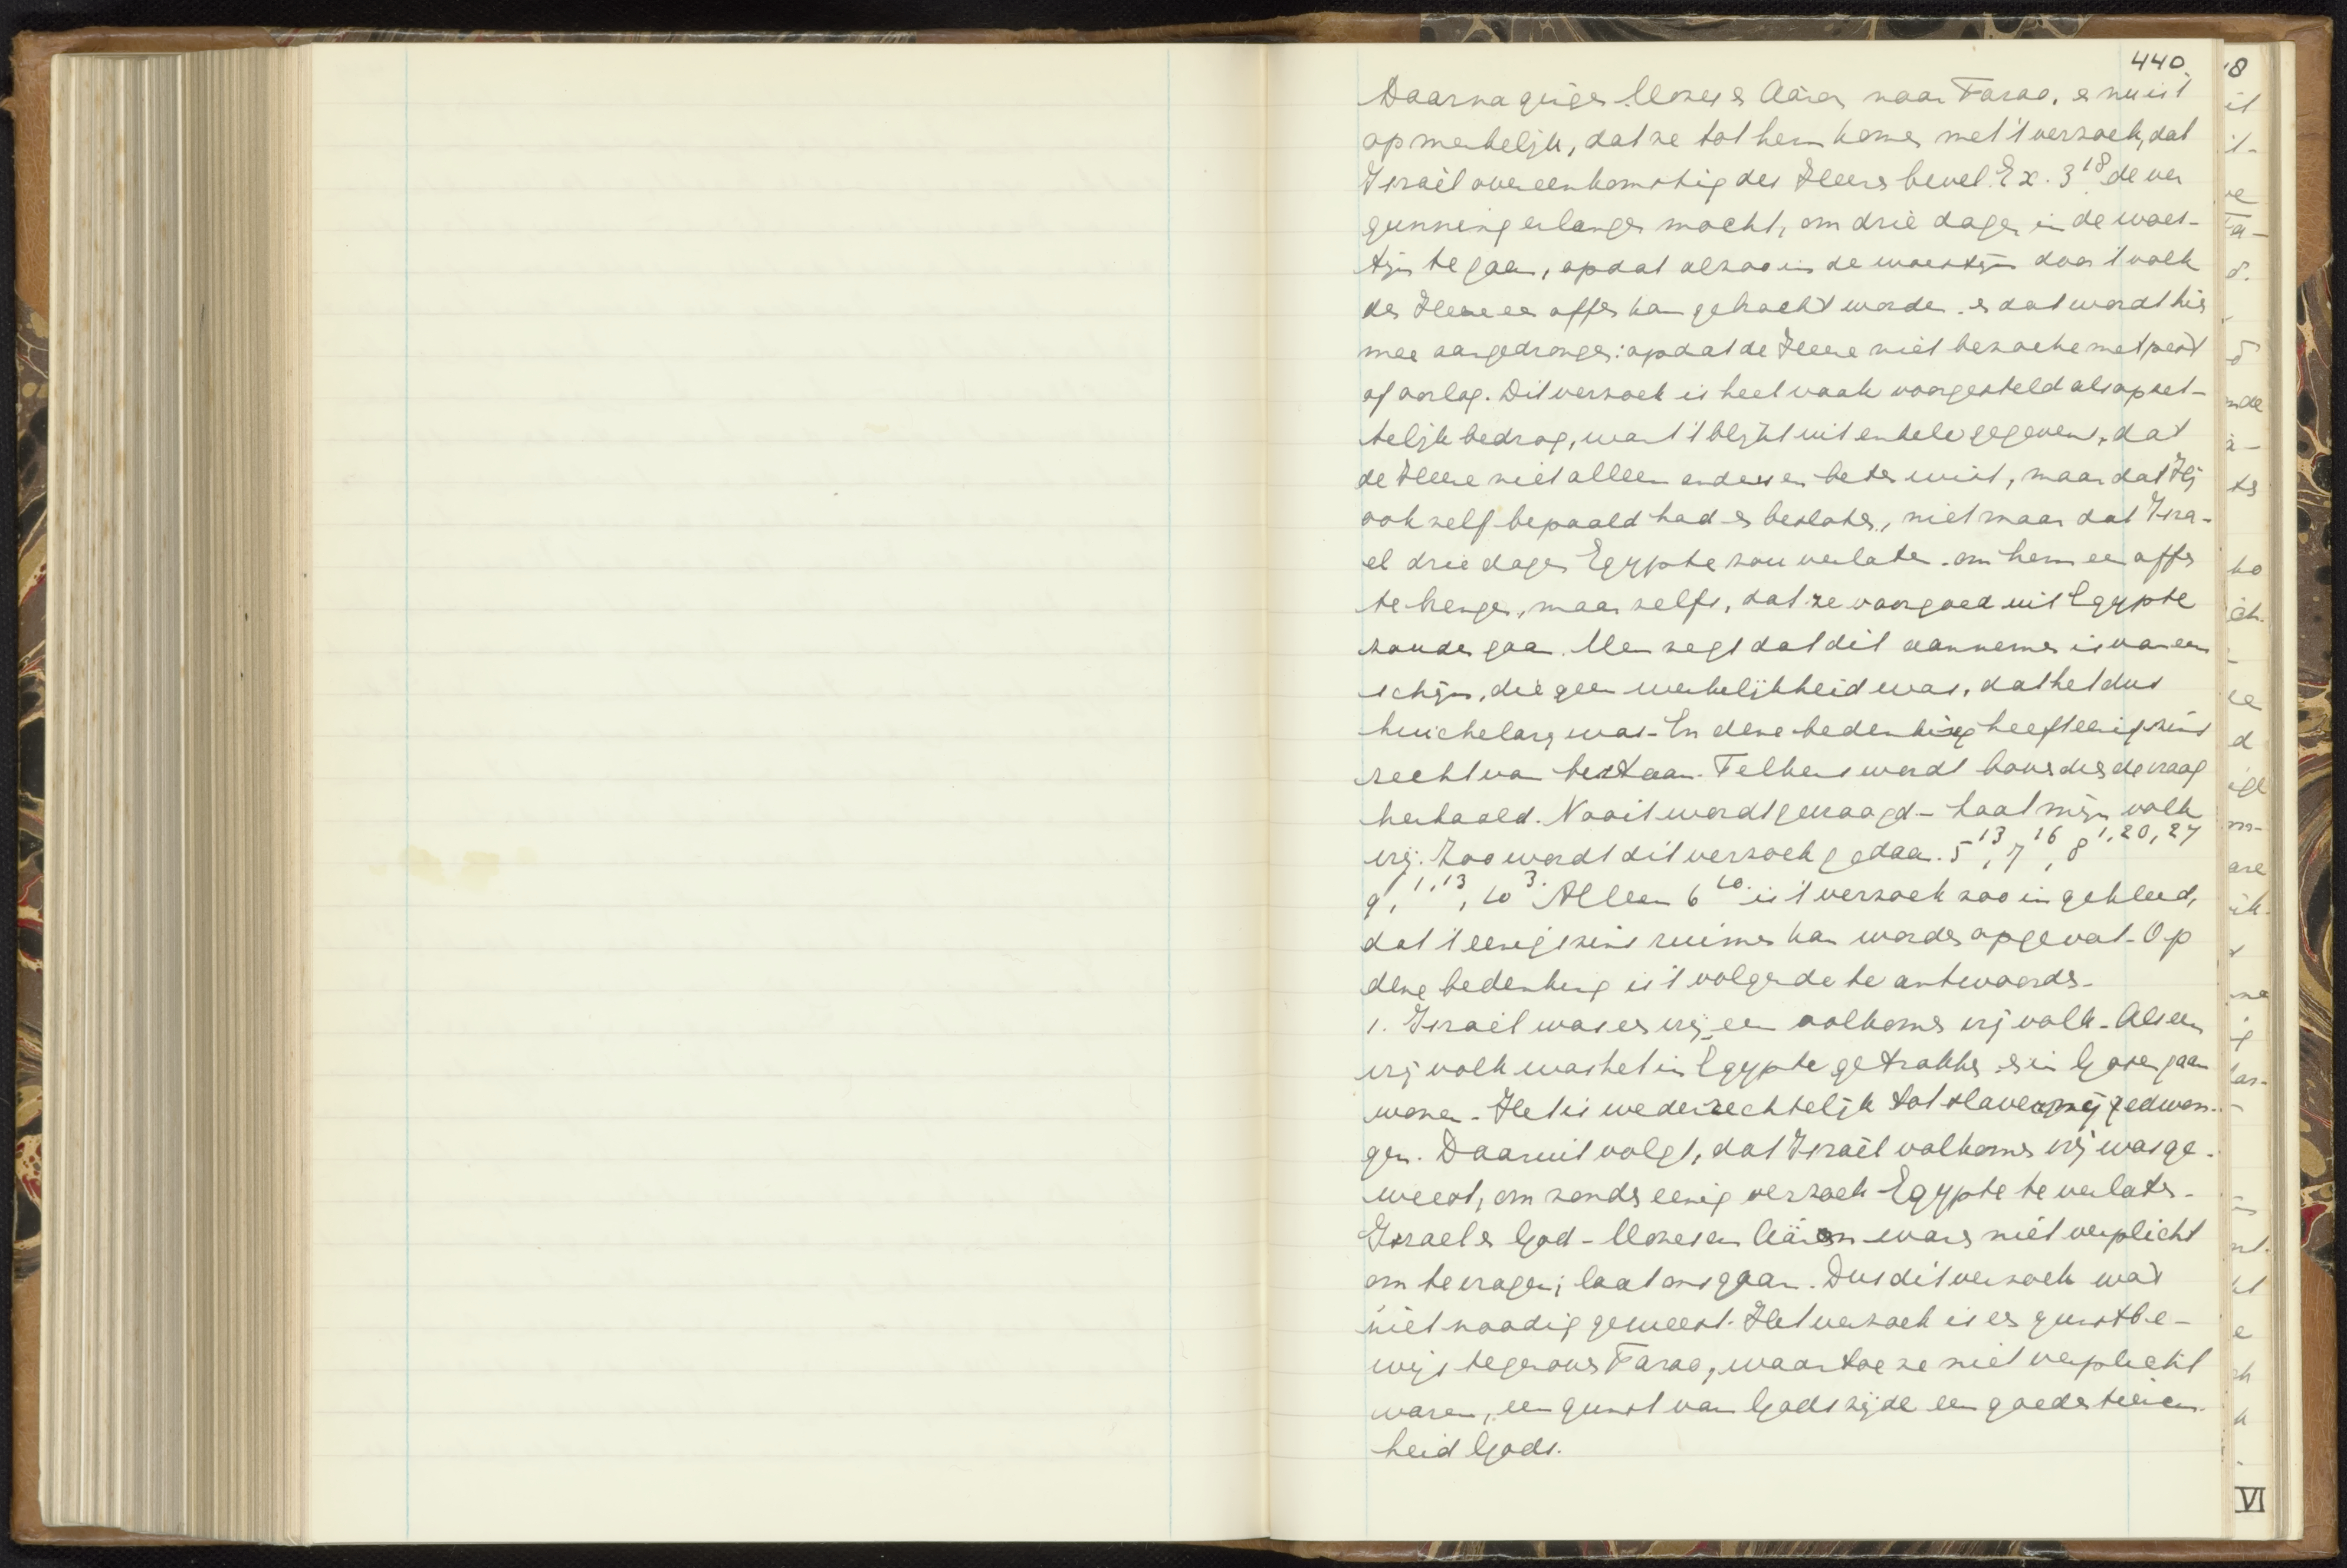 440.
Daarna gingen Mozes en Aäron naar Farao, en nu is 't
opmerkelijk, dat ze tot hem komen met 't verzoek, dat
Israël overeenkomstig des Heeren bevel Ex. 3 18 de ver
gunning erlangen mocht, om drie dagen in de woes-
tijn te gaan, opdat alzoo in de woestijn door 't volk
den Heere een offer kan gebracht worden. en dat wordt hier
mee aangedrongen: opdat de Heere niet bezoeke met pest
of oorlog. Dit verzoek is heel vaak voorgesteld als opzet-
telijk bedrog, want 't blijkt uit enkele gegevens, dat
de Heere niet alleen anders en beter wist, maar dat Hij
ook zelf bepaald had en besloten, niet maar dat Isra-
el drie dagen Egypte zou verlaten om hem een offer
te brengen, maar zelfs, dat ze voorgoed uit Egypte
zouden gaan. Men zegt dat dit aannemen is van een
schijn, die geen werkelijkheid was, dat het dus
huichelarij was. En deze bedenking heeft eenigszins
recht van bestaan. Telkens wordt bovendien de vraag
herhaald. Nooit wordt gevraagd - laat mijn volk
vrij. Zoo wordt dit verzoek gedaan. 5 13, 7 16, 8 1, 20, 27
9, 1, 13, 10 3. Alleen 6 10. is 't verzoek zoo ingekleed,
dat 't eenigszins ruimer kan worden opgevat. Op
deze bedenking is 't volgende te antwoorden.
1. Israël was en vrij, een volkomen vrij volk. Als een
vrij volk was het in Egypte getrokken en in Gosen gaan
wonen. Het is wederrechtelijk tot slavernij gedwon-
gen. Daaruit volgt, dat Israël volkomen vrij was ge-
weest, om zonder eenig verzoek Egypte te verlaten.
Israel en God - Mozes en Aäron waren niet verplicht
om te vragen; laat ons gaan. Dus dit verzoek was
niet noodig geweest. Het verzoek is een gunstbe-
wijs tegenover Farao, waartoe ze niet verplicht
waren, een gunst van Gods zijde een goedertieren
heid Gods.
VI